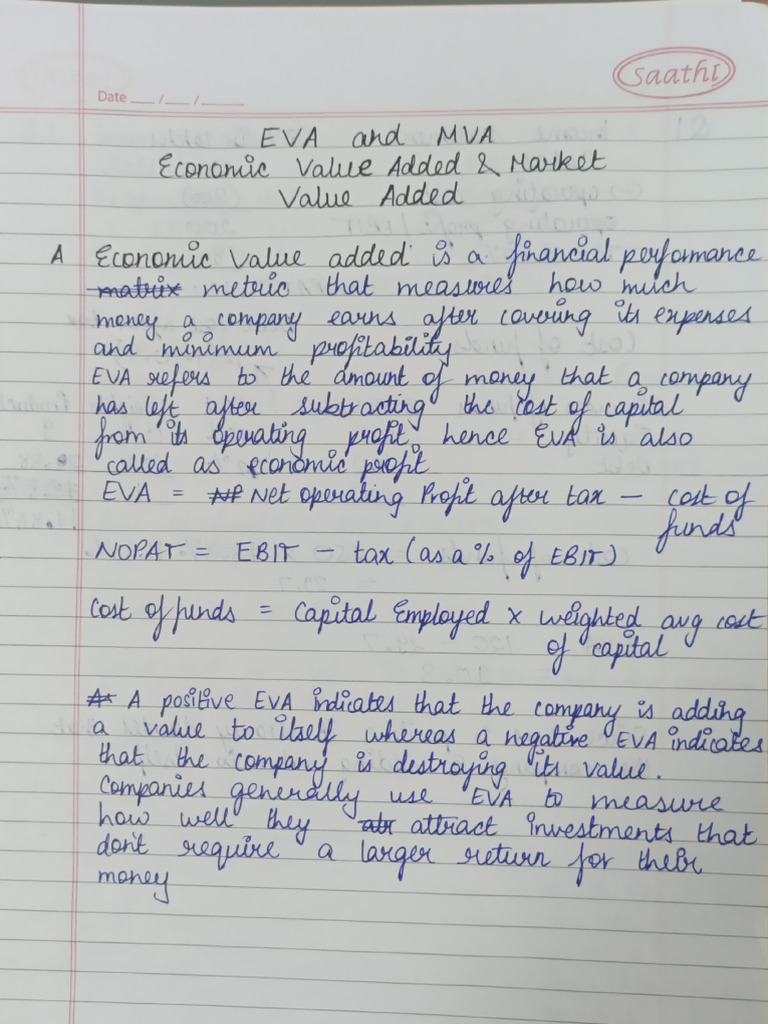 Saathi
Date ___/___/_____
EVA and MVA
Economic Value Added & Market
Value Added
A Economic Value added is a financial performance
matrix metric that measures how much
money a company earns after covering its expenses
and minimum profitability
EVA refers to the amount of money that a company
has left after subtracting the cost of capital
from its operating profit, hence EVA is also
called as economic profit
EVA = NP Net operating Profit after tax – cost of
funds
NOPAT = EBIT – tax (as a % of EBIT)
Cost of funds = Capital Employed x weighted avg cost
of capital
A positive EVA indicates that the company is adding
a value to itself whereas a negative EVA indicates
that the company is destroying its value.
Companies generally use EVA to measure
how well they attract investments that
don't require a larger return for their
money